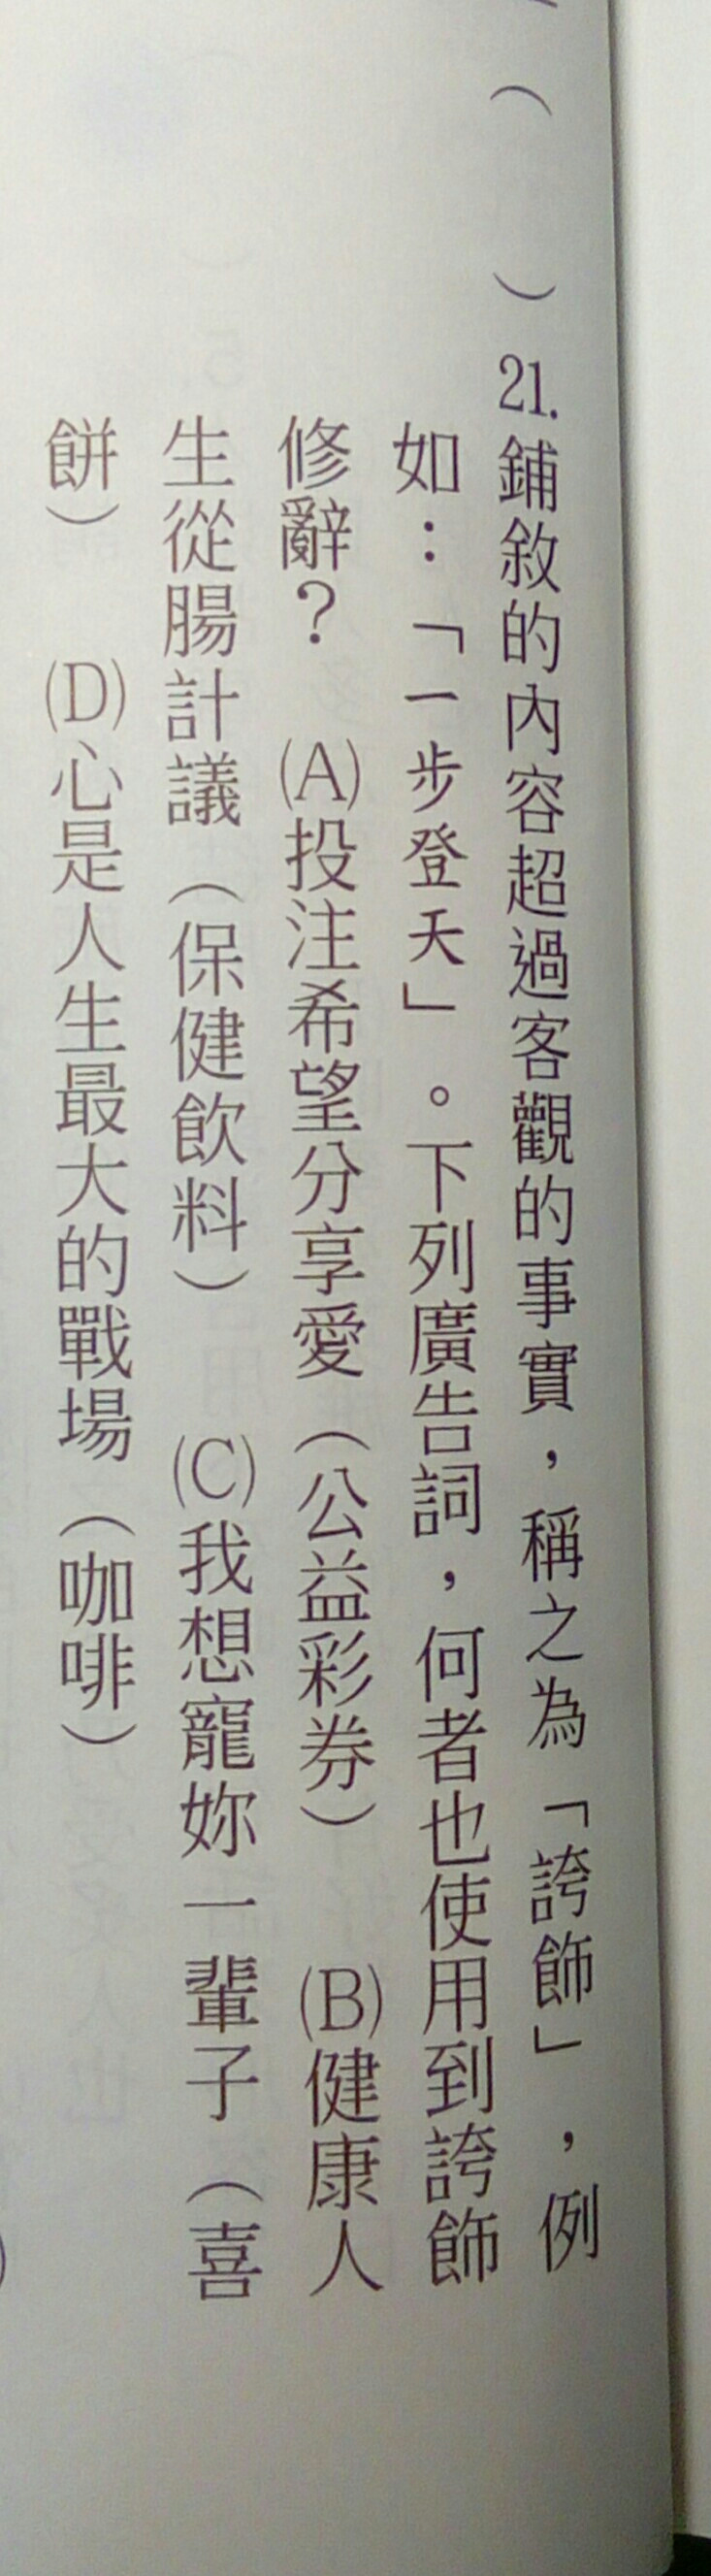 （　　）21.鋪敘的內容超過客觀的事實，稱之為「誇飾」，例
如：「一步登天」。下列廣告詞，何者也使用到誇飾
修辭？　(A)投注希望分享愛（公益彩券）　(B)健康人
生從腸計議（保健飲料）　(C)我想寵妳一輩子（喜
餅）　(D)心是人生最大的戰場（咖啡）